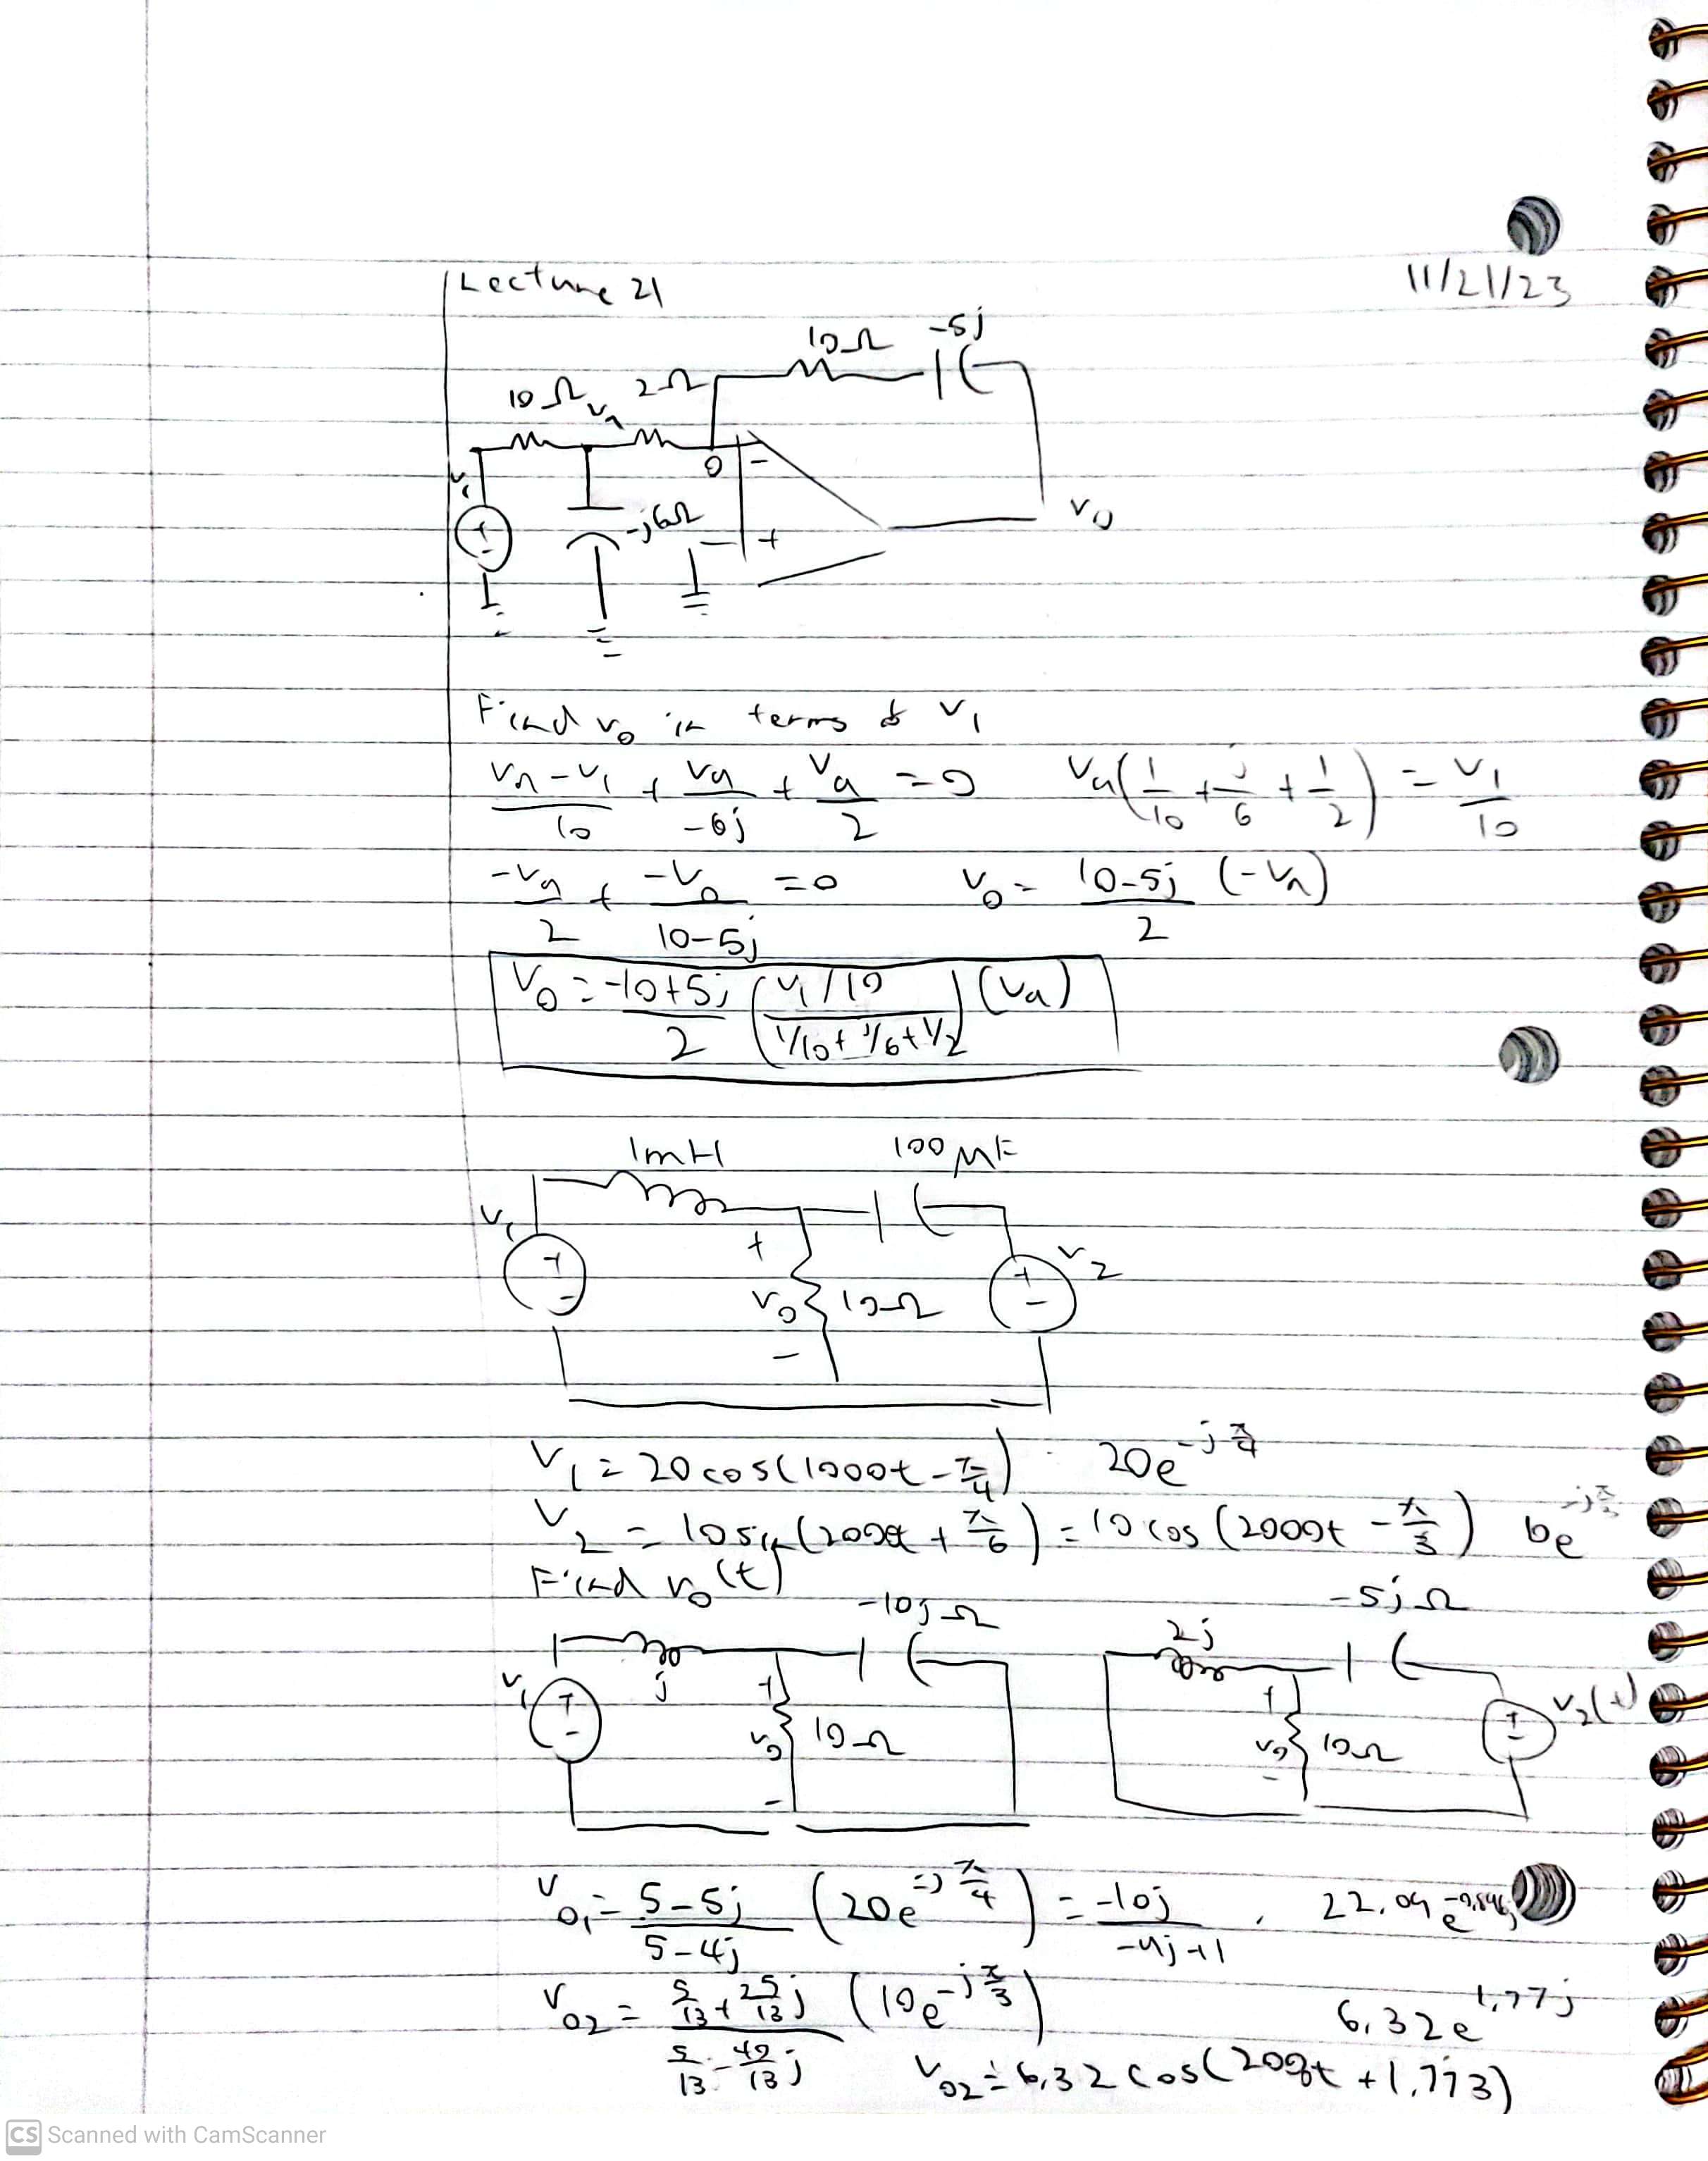 Lecture 21 11/21/23
10Ω -5j
10Ω va 2Ω
0 -
v1 + - -j6Ω + vo
Find vo in terms of v1
(va-v1)/10 + va/-6j + va/2 = 0 va(1/10 + j/6 + 1/2) = v1/10
-va/2 + -vo/(10-5j) = 0 vo = (10-5j)/2 (-va)
vo = (-10+5j)/2 ((v1/10)/(1/10 + j/6 + 1/2)) (va)
1mH 100 μF
v1 + - + vo - 10Ω + - v2
v1 = 20cos(1000t - π/4) 20e^(-jπ/4)
v2 = 10sin(2000t + π/6) = 10cos(2000t - π/3) 10e^(-jπ/3)
Find vo(t)
-10jΩ -5jΩ
j 2j
v1 + - + vo - 10Ω + vo - 10Ω + - v2(t)
vo1 = (5-5j)/(5-4j) (20e^(-jπ/4)) = -10j/(-4j+1)
vo2 = (5/13 + 25/13 j)/(5/13 - 40/13 j) (10e^(-jπ/3)) 6.32e^(1.77j)
vo2 = 6.32cos(2000t + 1.773)
CS Scanned with CamScanner